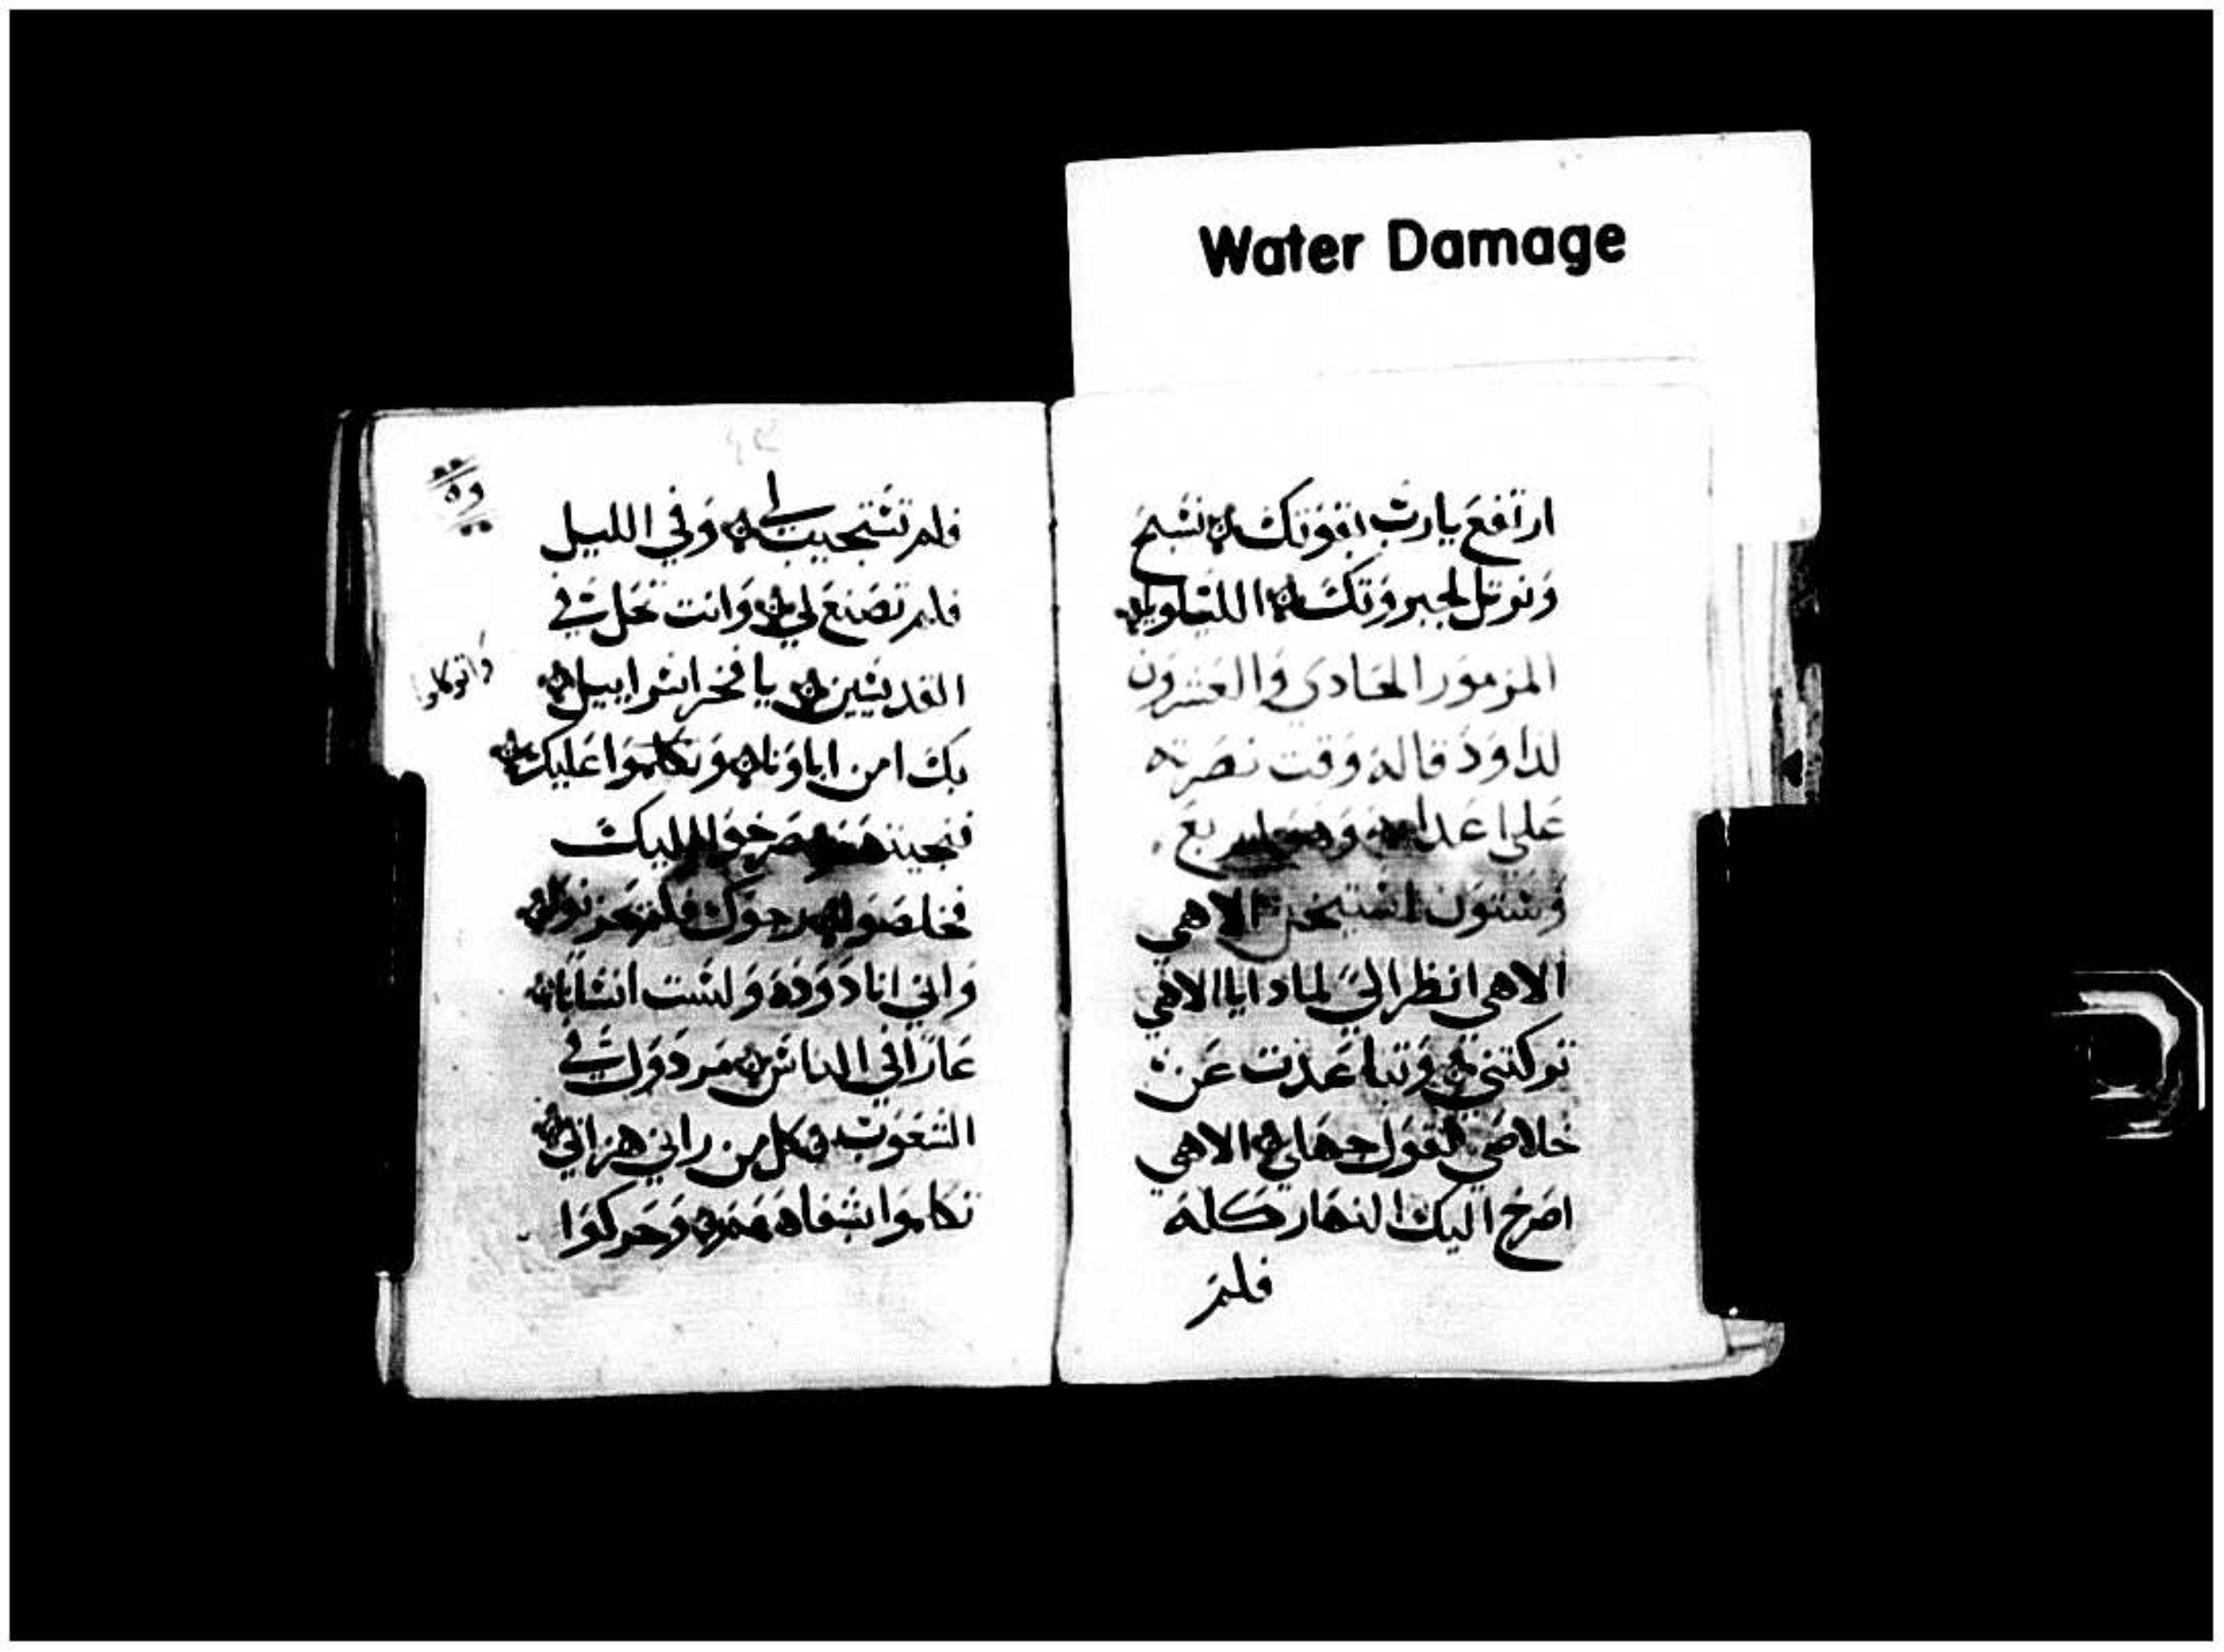 Water Damage
ارتفع يارب بقوتك نسبح
ونرتل لجبروتك الليلويا
المزمور الحادي والعشرون
لداود قاله وقت نصرته
على اعدا
الاهي
الاهي انظر الي لماذا يا الاهي
تركتني وتباعدت عن
خلاصي لقول جهلي الاهي
اصرخ اليك النهار كله
فلم
فلم تستجيب لي وفي الليل
فلم تصنع لي وانت تحل في
القديسين يا فخر اسراييل
واتوكلوا
بك امن اباونا وتكلموا عليك
فنجيتهم صرخوا اليك
فخلصوا رجوك فلم يخزوا
واني انا دوده ولست انسانا
عارا في الناس مردول في
الشعوب كل من راني هزاني
تكلموا بشفاههم وحركوا